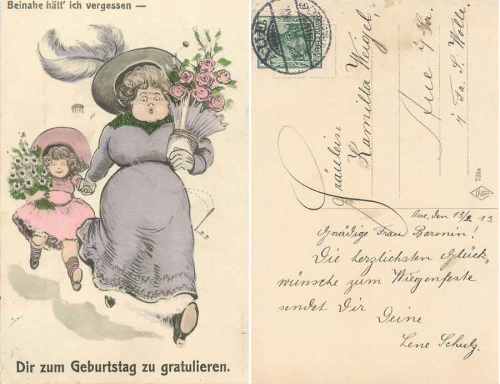 Beinahe hätt' ich vergessen —
Dir zum Geburtstag zu gratulieren.
Fräulein
Kamilla Weigel,
Aue i/Sa.
7 Fa. S. Wolle.
728a
Aue, den 13/2 13.
Gnädige Frau Baronin!
Die herzlichsten Glück-
wünsche zum Wiegenfeste
sendet Dir Deine
Lene Schulz.